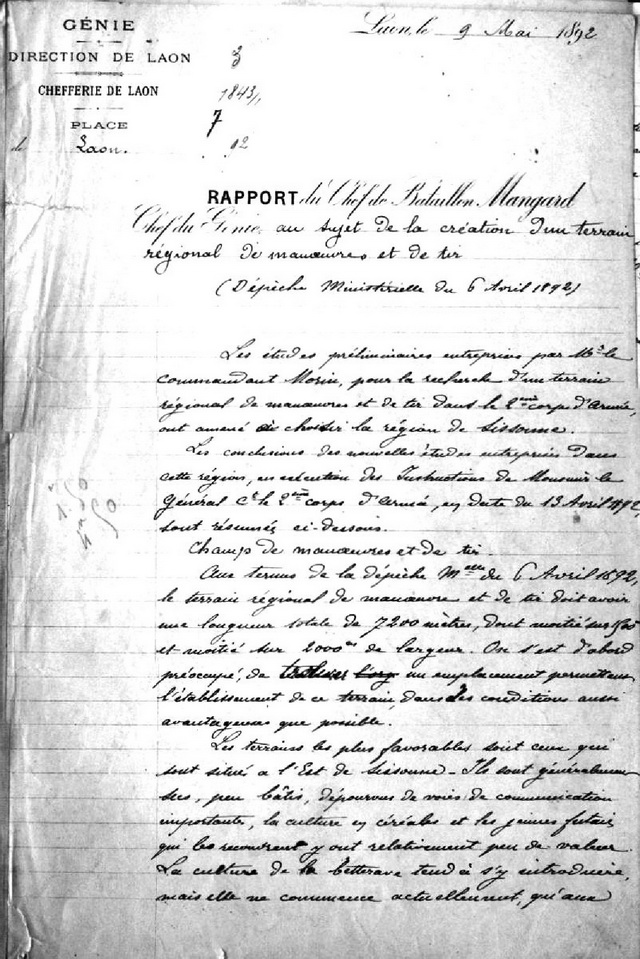 GÉNIE
DIRECTION DE LAON
CHEFFERIE DE LAON
PLACE
de Laon.
3
1843/1
7
92
Laon, le 9 Mai 1892
RAPPORT du Chef de Bataillon Mangard
Chef du Génie, au sujet de la création d'un terrain
régional de manœuvres et de tir
(Dépêche Ministérielle du 6 Avril 1892)
Les études préliminaires entreprises par Mr le
commandant Morin, pour la recherche d'un terrain
régional de manœuvres et de tir dans le 2eme corps d'Armée,
ont amené à choisir la région de Sissonne.
Les conclusions des nouvelles études entreprises dans
cette région, en exécution des Instructions de Monsieur le
Général Ct le 2eme corps d'Armée, en date du 13 Avril 1892,
sont résumées ci-dessous.
Champ de manœuvres et de tir
Aux termes de la dépêche Melle du 6 Avril 1892,
le terrain régional de manœuvre et de tir doit avoir
une longueur totale de 7200 mètres, dont moitié sur 1500
et moitié sur 2000m de largeur. On s'est d'abord
préoccupé, de un emplacement permettant
l'établissement de ce terrain, dans des conditions aussi
avantageuses que possible.
Les terrains les plus favorables sont ceux qui
sont situés à l'Est de Sissonne - Ils sont généralement
secs, peu bâtis, dépourvus de voies de communication
importantes, la culture en céréales et les jeunes futaies
qui les recouvrent y ont relativement peu de valeur.
La culture de la betterave tend à s'y introduire,
mais elle ne commence actuellement, qu'aux